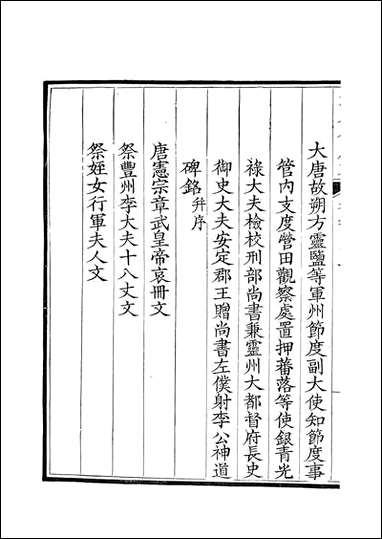 大唐故朔方靈鹽等軍州節度副大使知節度事
管內支度營田觀察處置押蕃落等使銀青光
祿大夫檢校刑部尚書兼靈州大都督府長史
御史大夫安定郡王贈尚書左僕射李公神道
碑銘并序
唐憲宗章武皇帝哀冊文
祭豐州李大夫十八丈文
祭姪女行軍夫人文